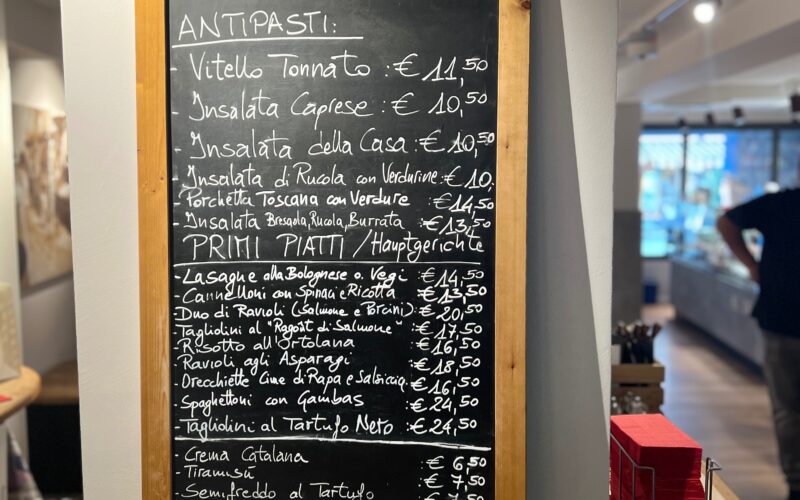 ANTIPASTI:
- Vitello Tonnato : € 11,50
- Insalata Caprese : € 10,50
- Insalata della Casa : € 10,50
- Insalata di Rucola con Verdurine : € 10.
- Porchetta Toscana con Verdure : € 14,50
- Insalata Bresaola, Rucola, Burrata : € 13,50
PRIMI PIATTI / Hauptgerichte
- Lasagne alla Bolognese o. Vegi : € 14,50
- Cannelloni con Spinaci e Ricotta : € 13,50
- Duo di Ravioli (Salmone e Porcini) : € 20,50
- Tagliolini al "Ragout di Salmone" : € 17,50
- Risotto all'Ortolana : € 16,50
- Ravioli agli Asparagi : € 18,50
- Orecchiette Cime di Rapa e Salsiccia : € 16,50
- Spaghettoni con Gambas : € 24,50
- Tagliolini al Tartufo Nero : € 24,50
- Crema Catalana : € 6,50
- Tiramisú : € 7,50
- Semifreddo al Tartufo : € 7,50